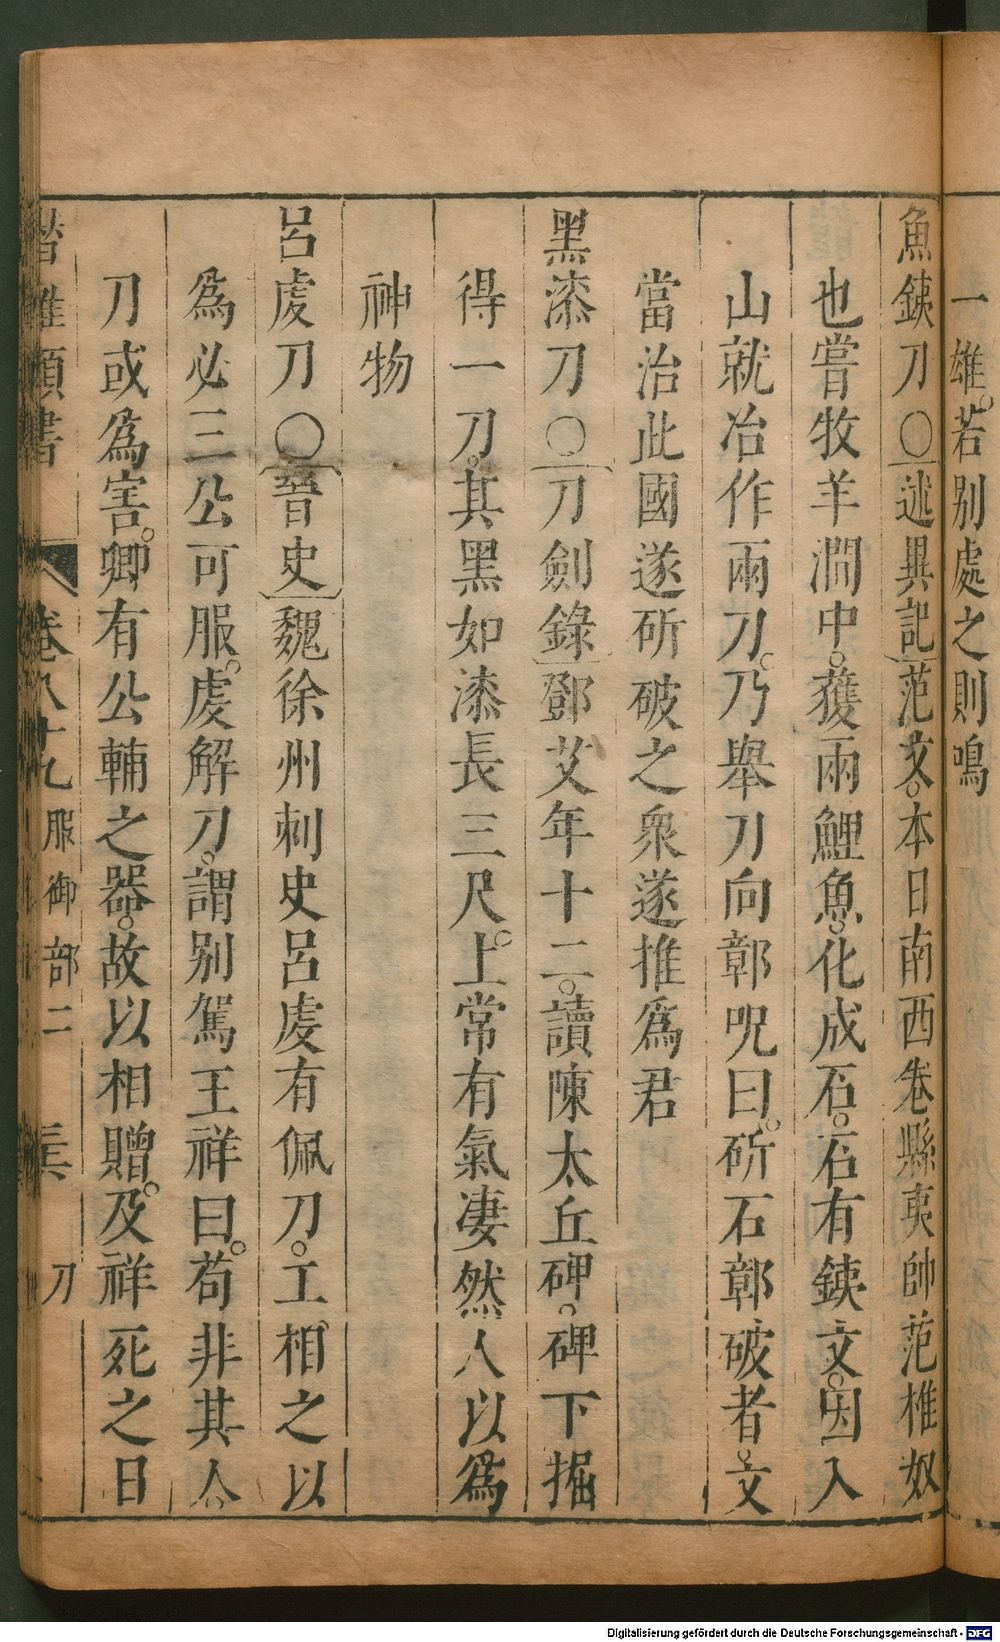 一雄若別處之則鳴
魚銕刀〇述異記范文本日南西卷縣夷帥范椎奴
也嘗牧羊澗中獲兩鯉魚化成石石有銕文因入
山就冶作兩刀乃舉刀向鄣呪曰斫石鄣破者文
當治此國遂斫破之衆遂推爲君
黑漆刀〇刀劍錄鄧艾年十二讀陳太丘碑碑下掘
得一刀其黑如漆長三尺上常有氣凄然人以爲
神物
呂虔刀〇晉史魏徐州刺史呂虔有佩刀工相之以
爲必三公可服虔解刀謂別駕王祥曰苟非其人
刀或爲害卿有公輔之器故以相贈及祥死之日
潛確類書 卷八十九 服御部二 刀
Digitalisierung gefördert durch die Deutsche Forschungsgemeinschaft - DFG